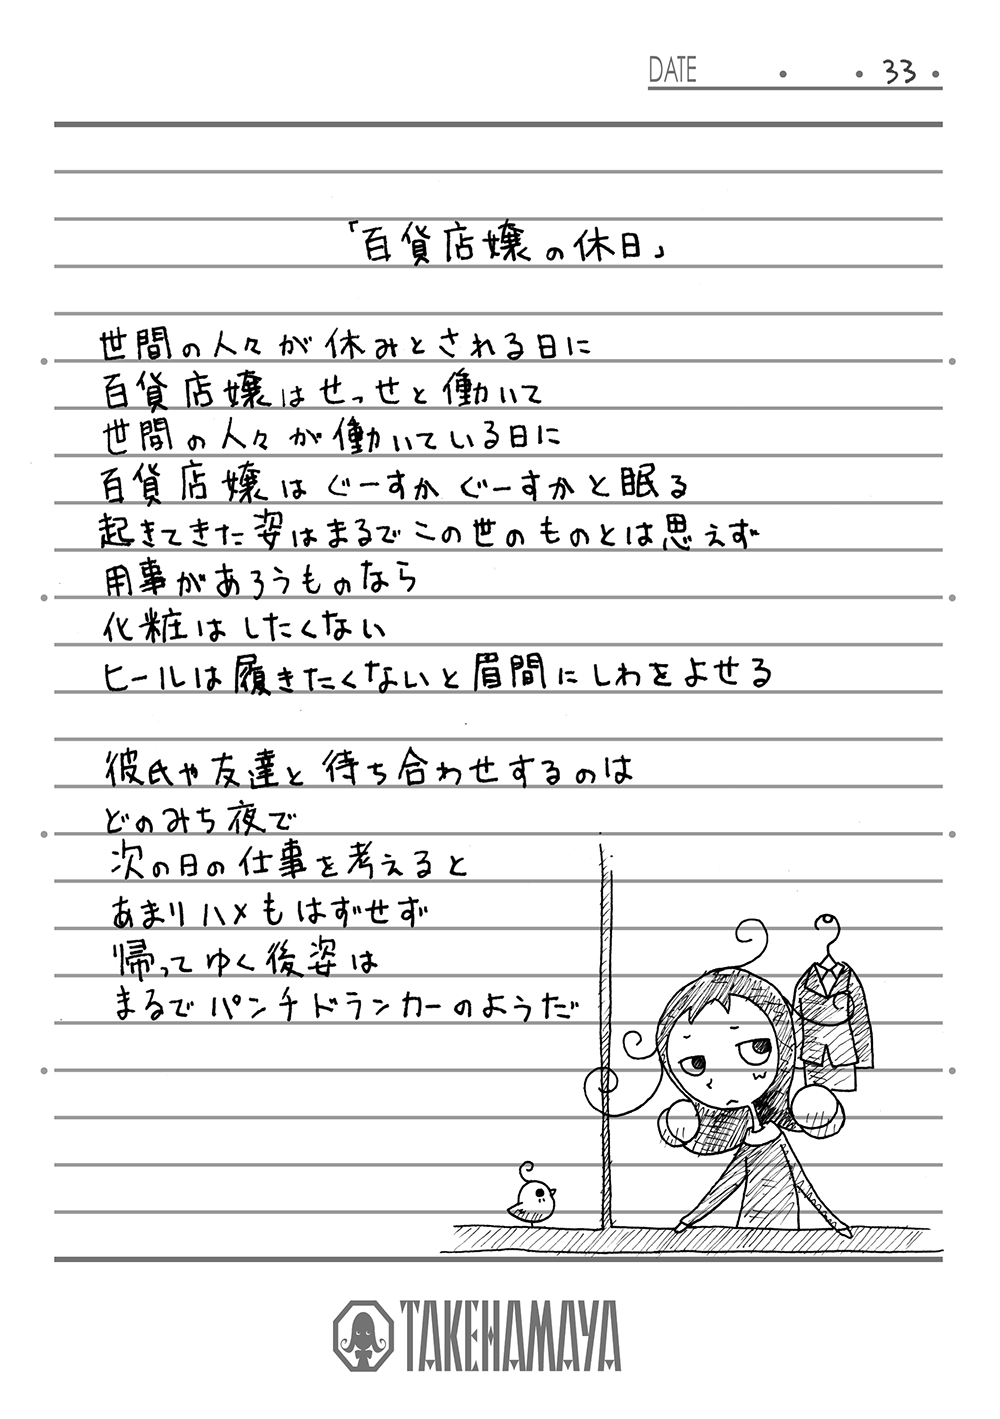 DATE ・ ・33・
「百貨店嬢の休日」
世間の人々が休みとされる日に
百貨店嬢はせっせと働いて
世間の人々が働いている日に
百貨店嬢はぐーすかぐーすかと眠る
起きてきた姿はまるでこの世のものとは思えず
用事があろうものなら
化粧はしたくない
ヒールは履きたくないと眉間にしわをよせる
彼氏や友達と待ち合わせするのは
どのみち夜で
次の日の仕事を考えると
あまりハメもはずせず
帰ってゆく後姿は
まるでパンチドランカーのようだ
TAKEHAMAYA